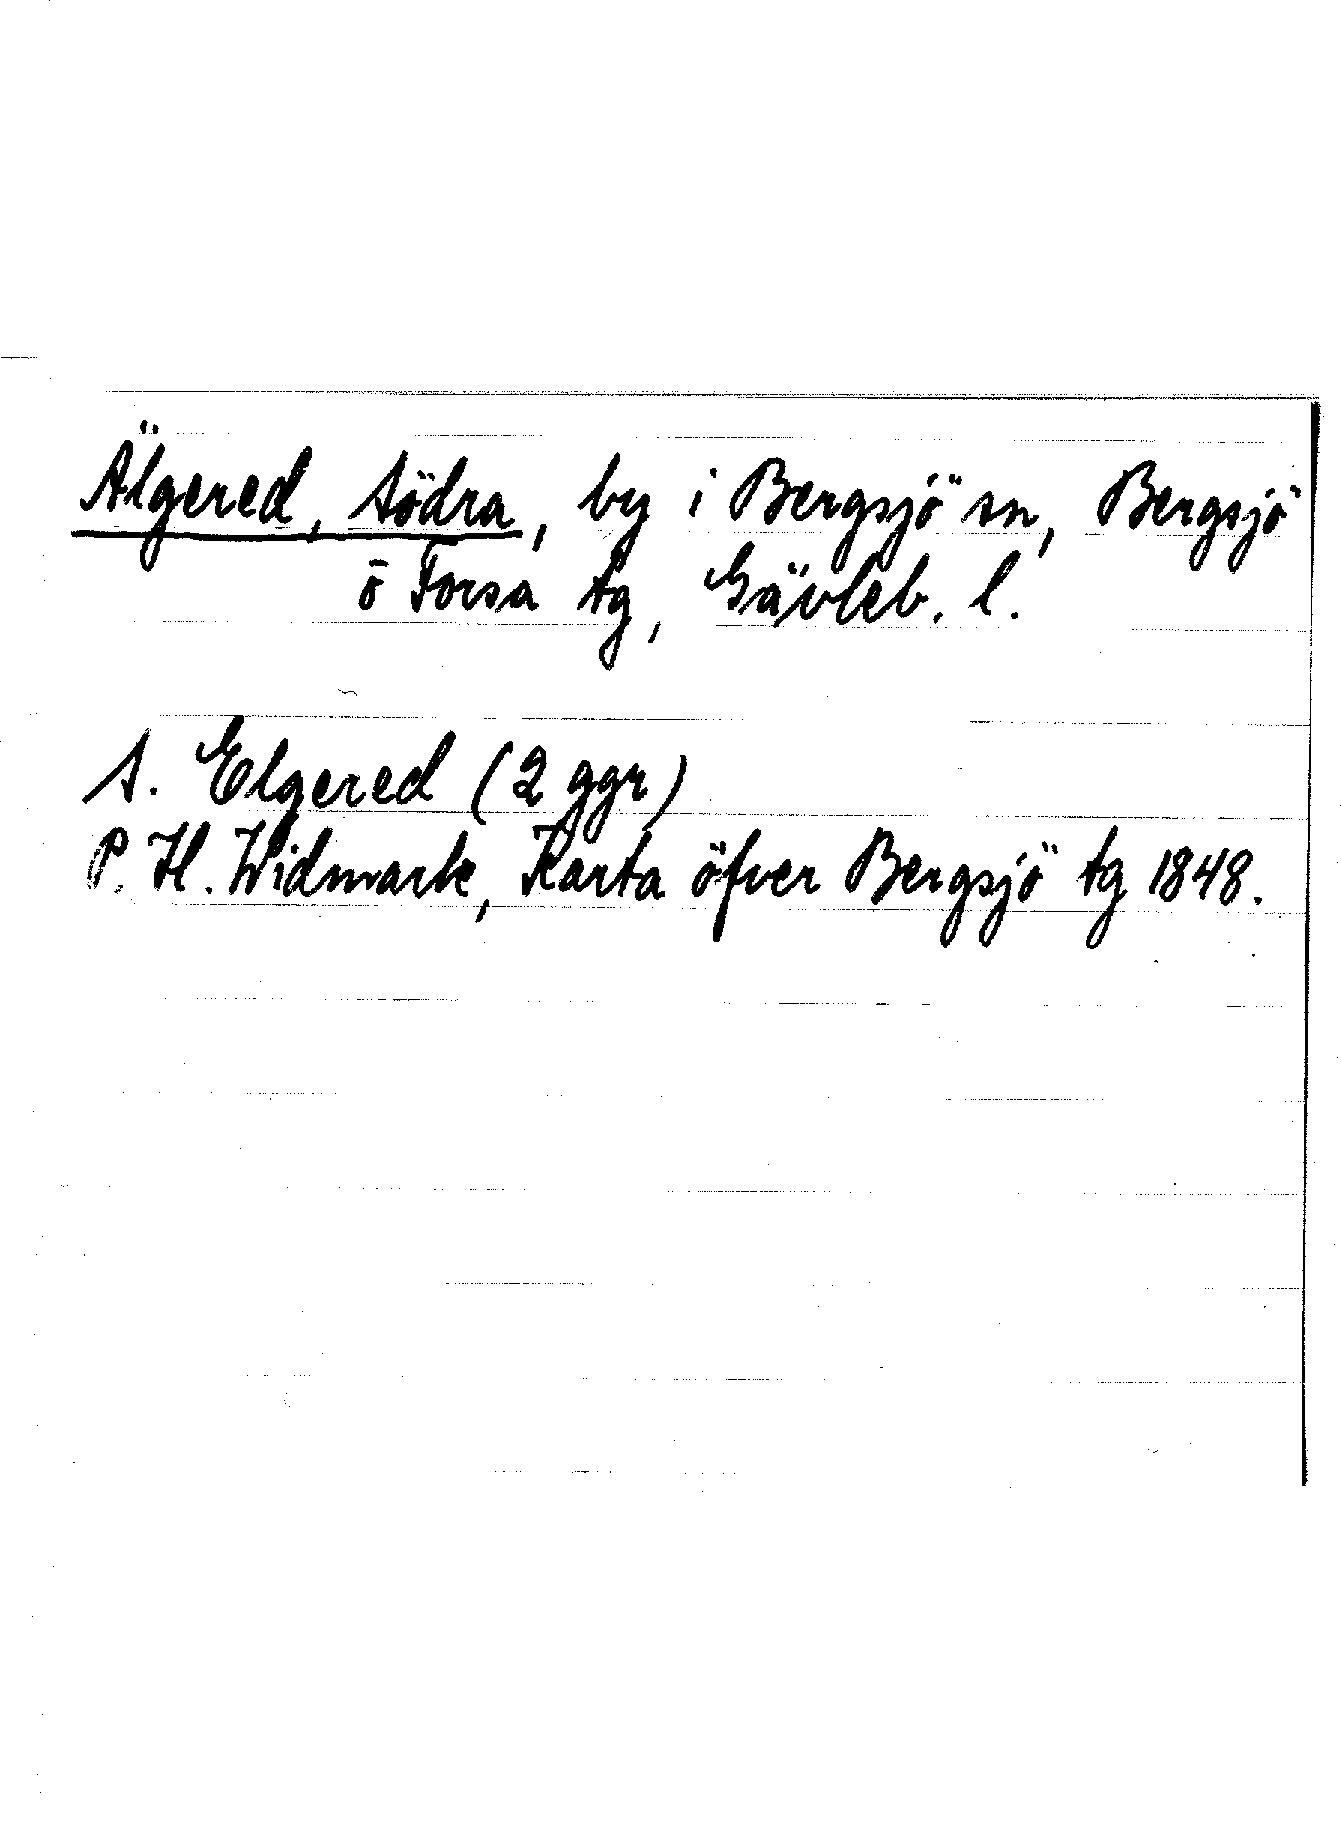 Älgered, Södra, by i Bergsjö sn, Bergsjö
o Forsa tg, Gävleb. l.
S. Elgered (2 ggr)
P. H. Widmark, Karta öfver Bergsjö tg 1848.